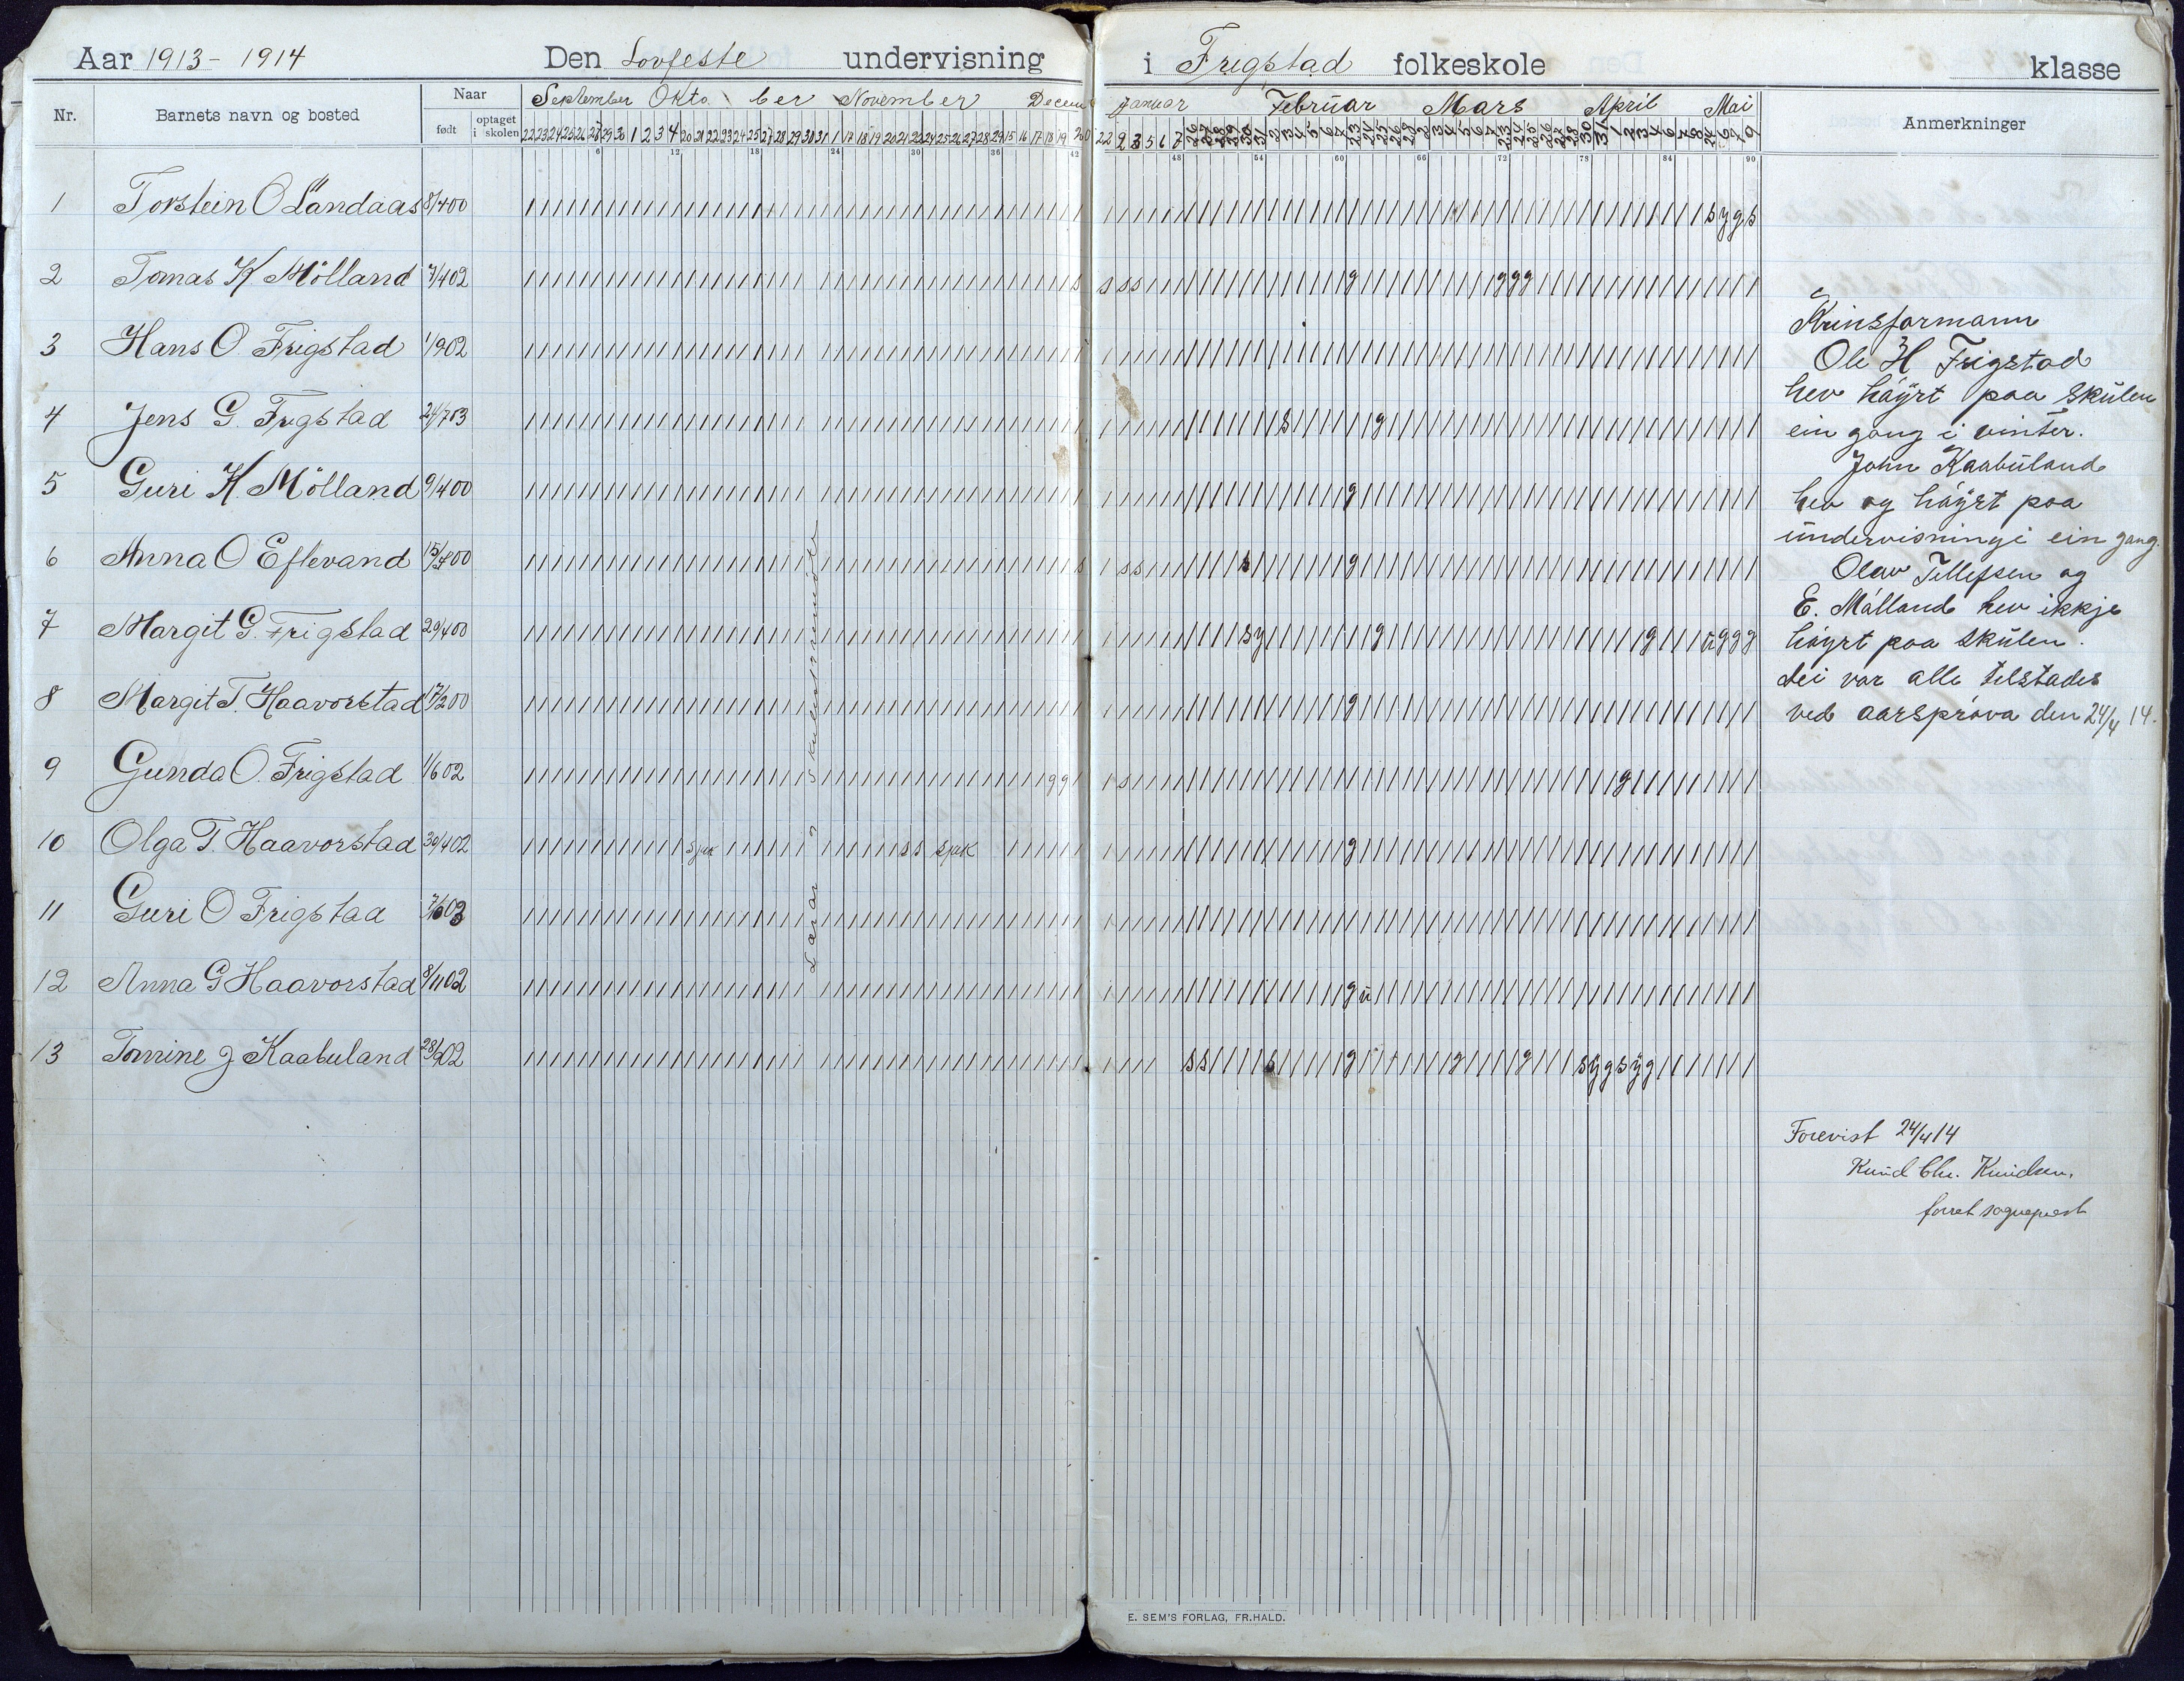 Aar 1913 - 1914 Den Lovfeste undervisning i Frigstad folkeskole klasse
Nr. Barnets navn og bosted Naar født optaget i skolen September Oktober November Decem Januar Februar Mars April Mai Anmerkninger
6 12 18 24 30 36 42 48 54 60 66 72 78 84 90
1 Torstein O Landaas 8/4 00 s y g s
2 Tomas K Mölland 7/4 02 s s s s g g g g
3 Hans O. Frigstad 1/9 02
4 Jens G. Frigstad 24/7 03 s g
5 Guri K. Mölland 9/4 00 g
6 Anna O Eftevand s s s s g
7 Margit G. Frigstad 29/4 00 s y g g u g g g
8 Margit T. Haavorstad 17/2 00 g
9 Gunda O. Frigstad 1/6 02 g g s g
10 Olga T. Haavorstad 30/4 02 sjuk s s sjuk g
11 Guri O Frigstad
12 Anna G Haavorstad 8/11 02 g u
13 Tomine J Kaabuland s s s g g g s y g s y g
Krinsformann
Ole H Frigstad
hev höyrt paa skulen
ein gong i vinter.
John Kaabuland
hev og höyrt paa
undervisningi ein gang.
Olav Tellefsen og
E. Mölland hev ikkje
höyrt paa skulen.
dei var alle telstades
ved aarspröva den 24/4 14.
Forevist 24/4 14
Knud Chr. Knudsen.
sogneprest
E. SEM'S FORLAG, FR.HALD.